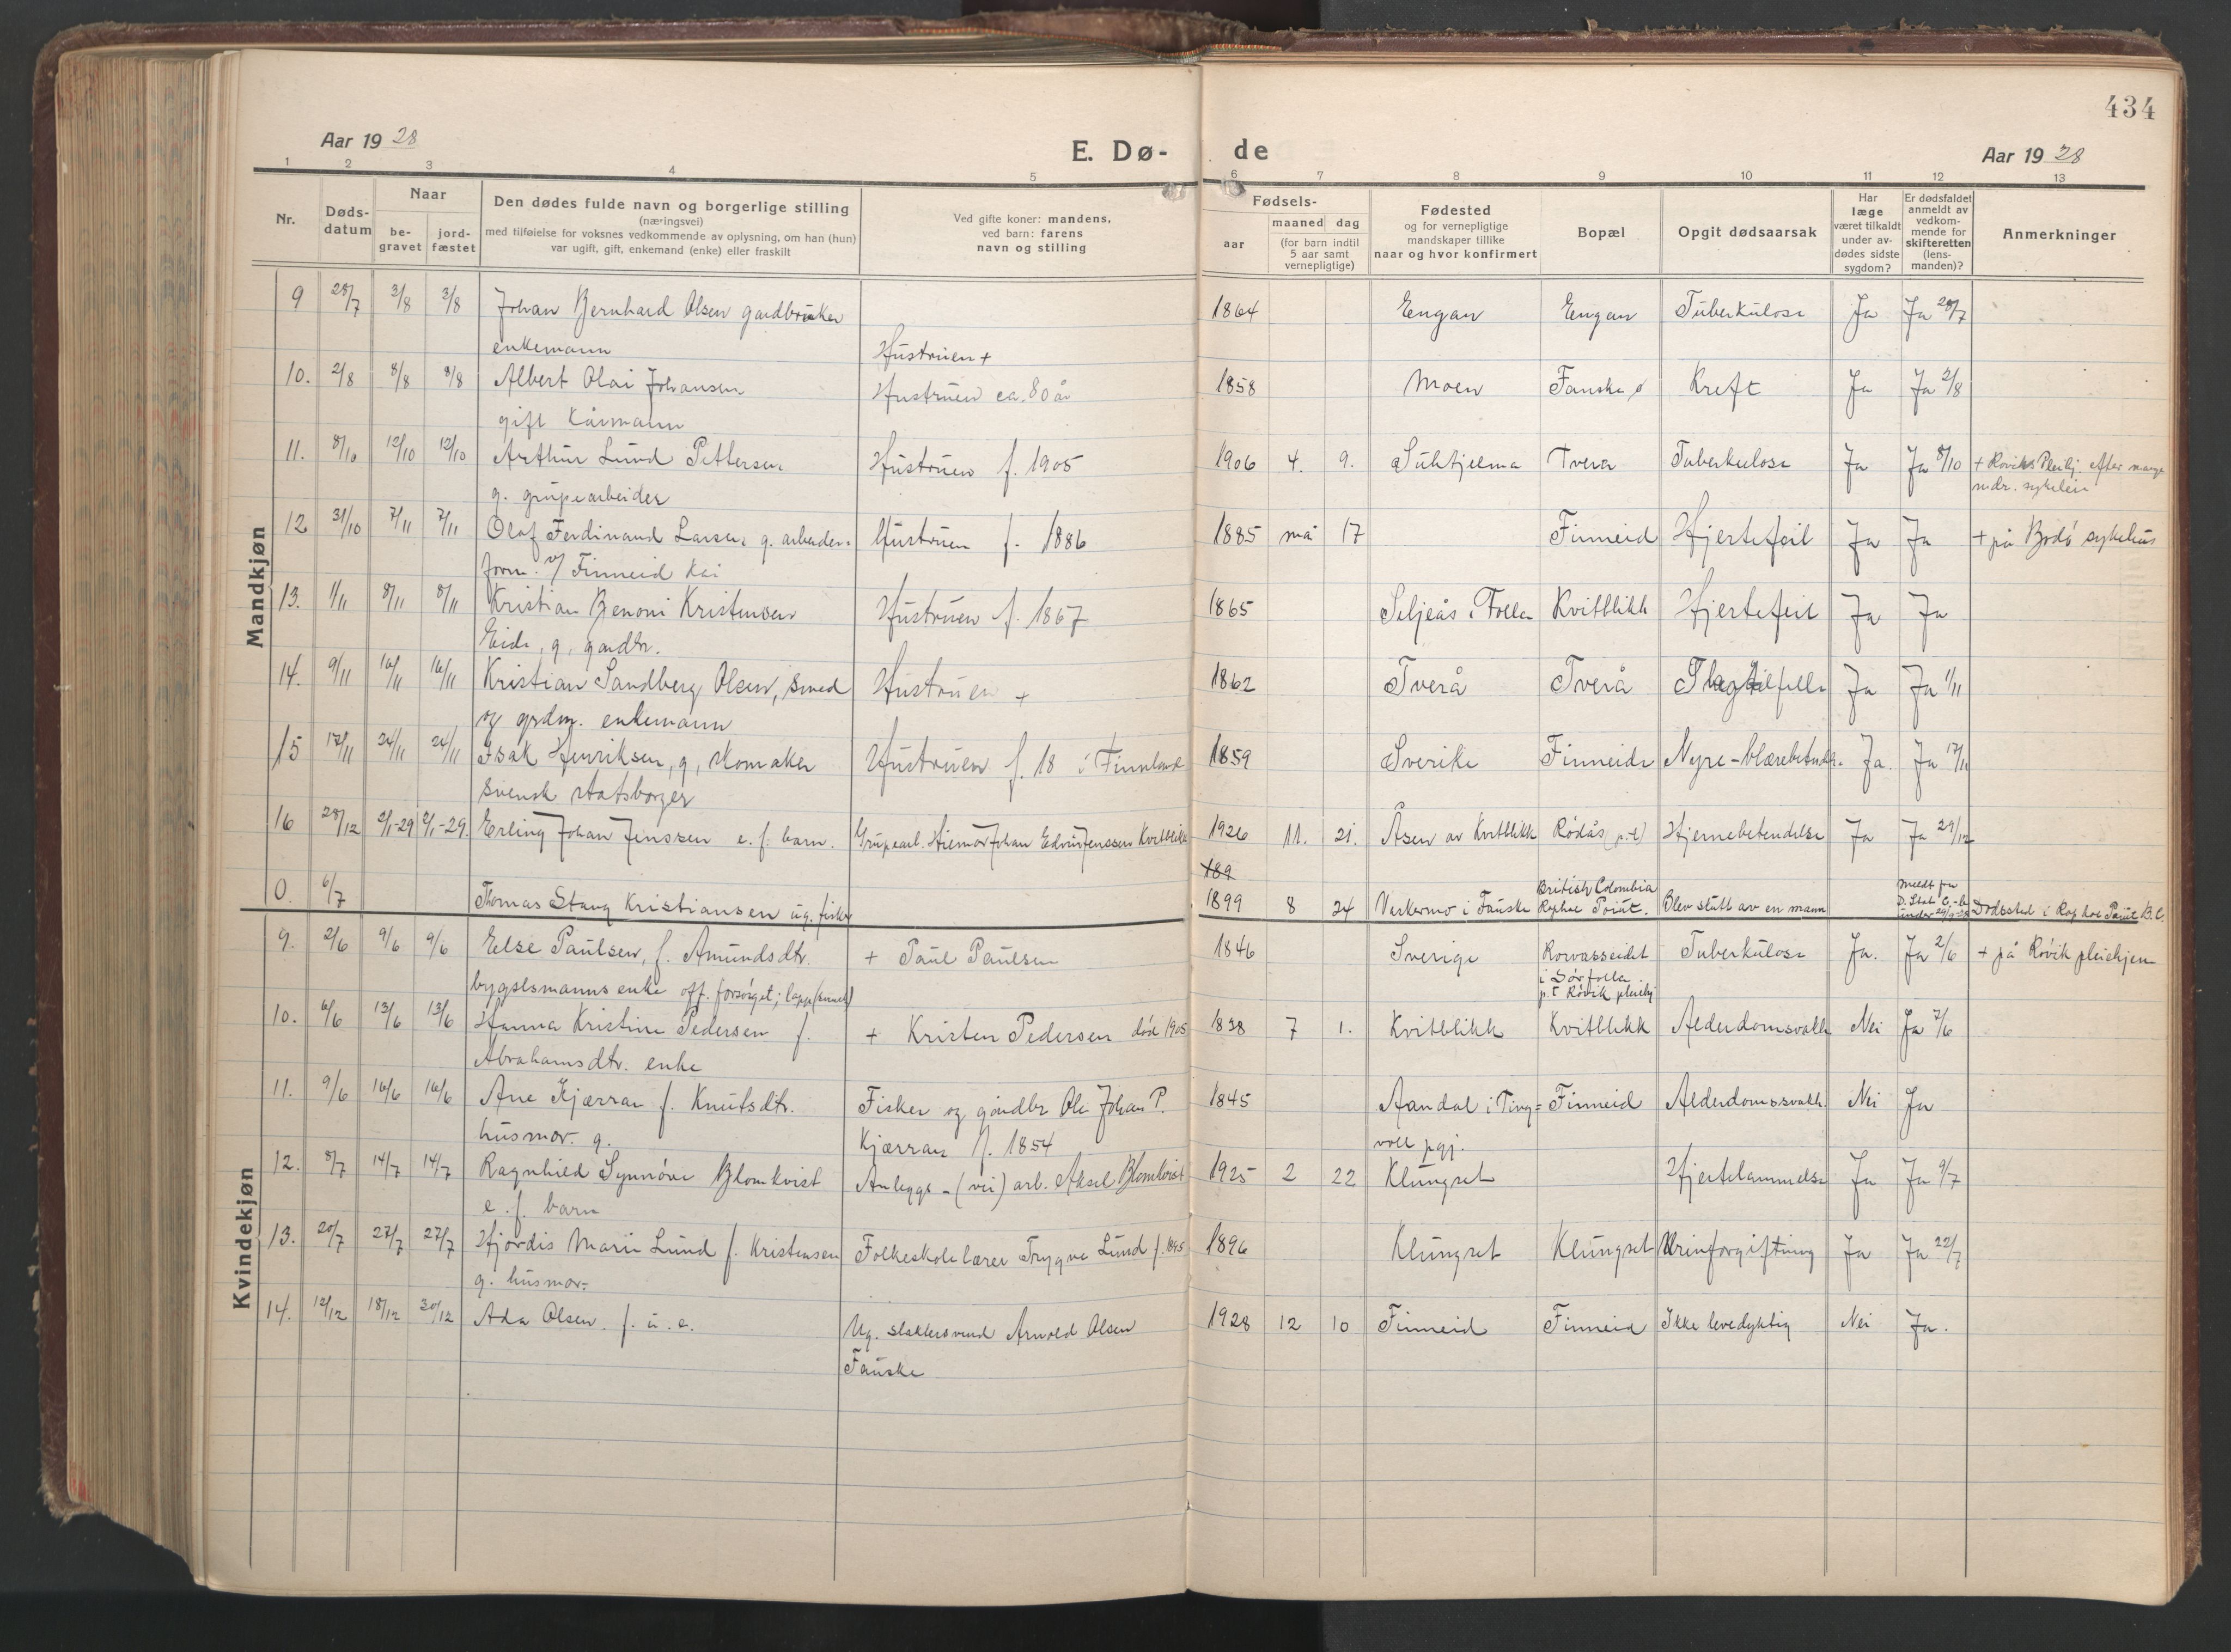 434
Aar 1928
E. Dø-
de
Aar 1928
1 2 3 4 5 6 7 8 9 10 11 12 13
Nr.
Døds-
datum
Naar
be-
gravet
jord-
fæstet
Den dødes fulde navn og borgerlige stilling
(næringsvei)
med tilføielse for voksnes vedkommende av oplysning, om han (hun)
var ugift, gift, enkemand (enke) eller fraskilt
Ved gifte koner: mandens,
ved barn: farens
navn og stilling
Fødsels-
aar
maaned dag
(for barn indtil
5 aar samt
vernepligtige)
Fødested
og for vernepligtige
mandskaper tillike
naar og hvor konfirmert
Bopæl
Opgit dødsaarsak
Har
læge
været tilkaldt
under av-
dødes sidste
sygdom?
Er dødsfaldet
anmeldt av
vedkom-
mende for
skifteretten
(lens-
manden)?
Anmerkninger
Mandkjøn
9 28/7 3/8 3/8 Johan Bernhard Olsen gardbruker 1864 Engan Engan Tuberkulose Ja Ja 28/7
enkemann Hustruen +
10. 2/8 8/8 8/8 Albert Olai Johansen Hustruen ca. 80 år 1858 Moen Fauske Kreft Ja Ja 2/8
gift kårmann
11. 8/10 12/10 12/10 Arthur Lund Pettersen Hustruen f. 1905 1906 4. 9. Sulitjelma Tverå Tuberkulose Ja Ja 8/10 + Røviks Pleihj. efter mange
g. grupearbeider mdr. sykeleie
12 31/10 7/11 7/11 Olaf Ferdinand Larsen g. arbeider- Hustruen f. 1886 1885 mai 17 Finneid Hjertefeil Ja Ja + på Bodø sykehus
form. v/ Finneid Kai
13. 1/11 8/11 8/11 Kristian Benoni Kristensen Hustruen f. 1867 1865 Seljeås i Folla Kvitblikk Hjertefeil Ja Ja
Eide, g, gardbr.
14. 9/11 16/11 16/11 Kristian Sandberg Olsen, smed Hustruen + 1862 Tverå Tverå Slagtilfelle Ja Ja 1/11
og grdm. enkemann
15 17/11 24/11 24/11 Isak Henriksen, g, skomaker Hustruen f. 18 i Finnland 1859 Sverike Finneide Nyre-blærebetend. Ja. Ja 17/11
svensk statsborger
16 28/12 2/1-29 2/1-29. Erling Johan Jenssen e. f. barn. Grupearb. Hilmar Johan Edvin Jenssen Kvitblikk 1926 11. 21. Åsen av Kvitblikk Rødås (p.t) Hjernebetendelse Ja Ja 29/12
189
0. 6/7 Thomas Stang Kristiansen ug. fisker 1899 8 24 Verkermo i Fauske British Colombia Blev slått av en mann Meldt fra
Dødssted i
B.C.
Kvindekjøn
9. 2/6 9/6 9/6 Else Paulsen, f. Amundsdtr. + Paul Paulsen 1846 Sverige Korvasseidet Tuberkulose Ja. Ja 2/6 + på Røvik pleiehjem
bygselsmanns enke off. forsørget; lapp i Sørfolla
p.t Røvik pleiehj
10. 6/6 13/6 13/6 Hanna Kristine Pedersen f. + Kristen Pedersen død 1905 1838 7 1. Kvitblikk Kvitblikk Alderdomsvakh Nei Ja 7/6
Abrahamsdtr. enke
11. 9/6 16/6 16/6 Ane Kjærran f. Knutsdtr. Fisker og gardbr Ole Johan P. 1845 Aandal i Ting= Finneid Alderdomssvakh. Nei Ja
husmor. g. Kjærran f. 1854 voll pgj.
12. 8/7 14/7 14/7 Ragnhild Synnøve Blomkvist Anleggs-(vei) arb. Aksel Blomkvist 1925 2 22 Klungset Hjertelammelse Ja Ja 9/7
e. f. barn
13. 20/7 27/7 27/7 Hjördis Marie Lund f. Kristensen Folkeskolelærer Trygve Lund f. 1895 1896 Klungset Klungset Urinforgiftning Ja Ja 22/7
g. husmor-
14. 12/12 18/12 30/12 Ada Olsen. f. u. e. Ug. slaktersvend Arnold Olsen 1928 12 10 Finneid Finneid Ikke levedyktig Nei Ja.
Fauske